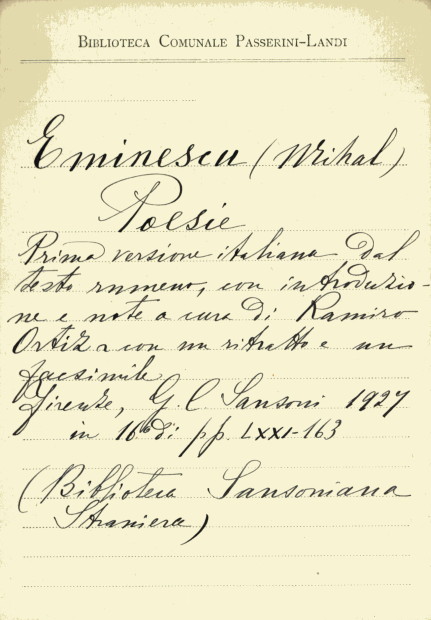 BIBLIOTECA COMUNALE PASSERINI-LANDI
Eminescu (Mihal)
Poesie
Prima versione italiana dal
testo rumeno, con introduzio-
ne e note a cura di Ramiro
Ortiz e con un ritratto e un
facsimile
Firenze, G. C. Sansoni 1927
in 16° di pp. LXXI-163
(Biblioteca Sansoniana
Straniera)